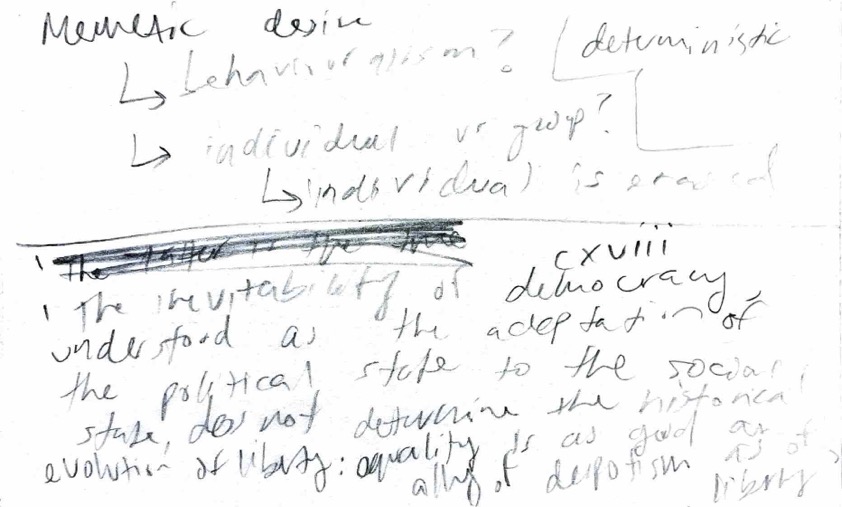 Memetic desire
↳ behaviouralism? deterministic
↳ individual vs group?
↳ individual is erased
the latter is the true
cxviii
' The inevitability of democracy,
understood as the adaptation of
the political state to the social
state, does not determine the historical
evolution of liberty: equality is as good an
ally of despotism as of
liberty'